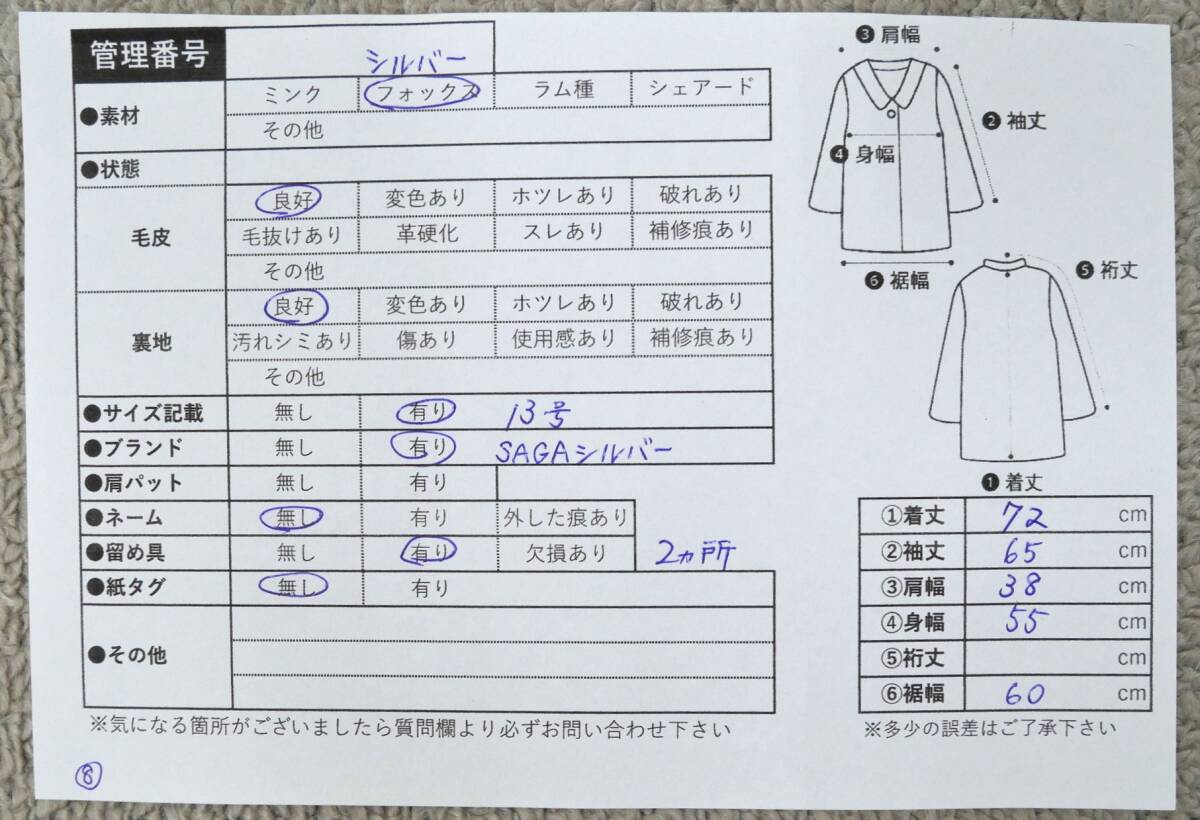 管理番号
シルバー
●素材 ミンク フォックス ラム種 シェアード
その他
●状態
毛皮 良好 変色あり ホツレあり 破れあり
毛抜けあり 革硬化 スレあり 補修痕あり
その他
裏地 良好 変色あり ホツレあり 破れあり
汚れシミあり 傷あり 使用感あり 補修痕あり
その他
●サイズ記載 無し 有り 13号
●ブランド 無し 有り SAGAシルバー
●肩パット 無し 有り
●ネーム 無し 有り 外した痕あり
●留め具 無し 有り 欠損あり 2ヵ所
●紙タグ 無し 有り
●その他
※気になる箇所がございましたら質問欄より必ずお問い合わせ下さい
⑧
❸肩幅
❷袖丈
❹身幅
❻裾幅
❺裄丈
❶着丈
①着丈 72 cm
②袖丈 65 cm
③肩幅 38 cm
④身幅 55 cm
⑤裄丈 cm
⑥裾幅 60 cm
※多少の誤差はご了承下さい